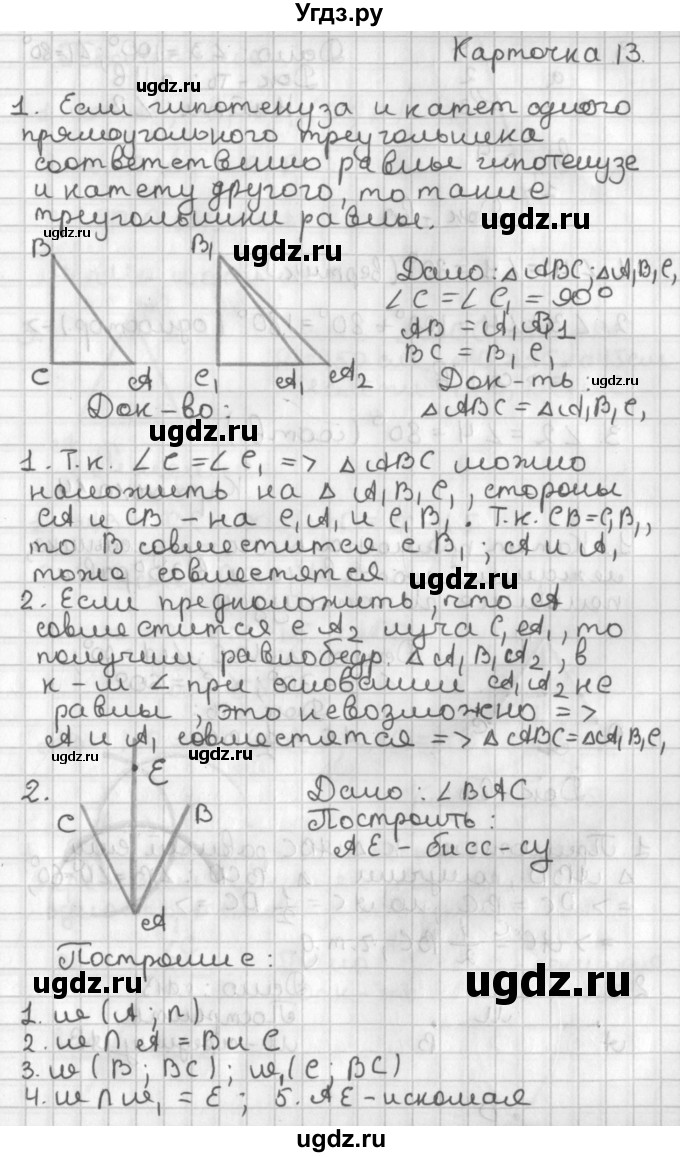 Угдз.ру
Карточка 13.
ugdz.ru
1. Если гипотенуза и катет одного
прямоугольного треугольника
соответственно равны гипотенузе
и катету другого, то такие
треугольники равны.
ugdz.ru
ugdz.ru
ugdz.ru
B B₁
Дано: △ABC; △A₁B₁C₁
∠C = ∠C₁ = 90°
AB = A₁B₁
BC = B₁C₁
C A C₁ A₁ A₂
Док-ть: ugdz.ru
△ABC = △A₁B₁C₁
Док-во:
ugdz.ru
1. Т.к. ∠C = ∠C₁ => △ABC можно
наложить на △A₁B₁C₁, стороны
CA и CB – на C₁A₁ и C₁B₁. Т.к. CB=C₁B₁,
то B совместится с B₁; A и A₁
тоже совместятся
ugdz.ru
2. Если предположить, что A
совместится с A₂ луча C₁A₁, то
получим равнобедр. △A₁B₁A₂, в
к-м ∠ при основании A₁A₂ не
равны, это невозможно =>
A и A₁ совместятся => △ABC=△A₁B₁C₁
ugdz.ru
ugdz.ru
E
2.
C B
A
Дано: ∠BAC
Построить:
AE – бисс-су
Построение:
ugdz.ru
ugdz.ru
1. w (A; r)
2. w ∩ A = B и C
3. w (B; BC); w₁(C; BC)
4. w ∩ w₁ = E; 5. AE – искомая
ugdz.ru
ugdz.ru